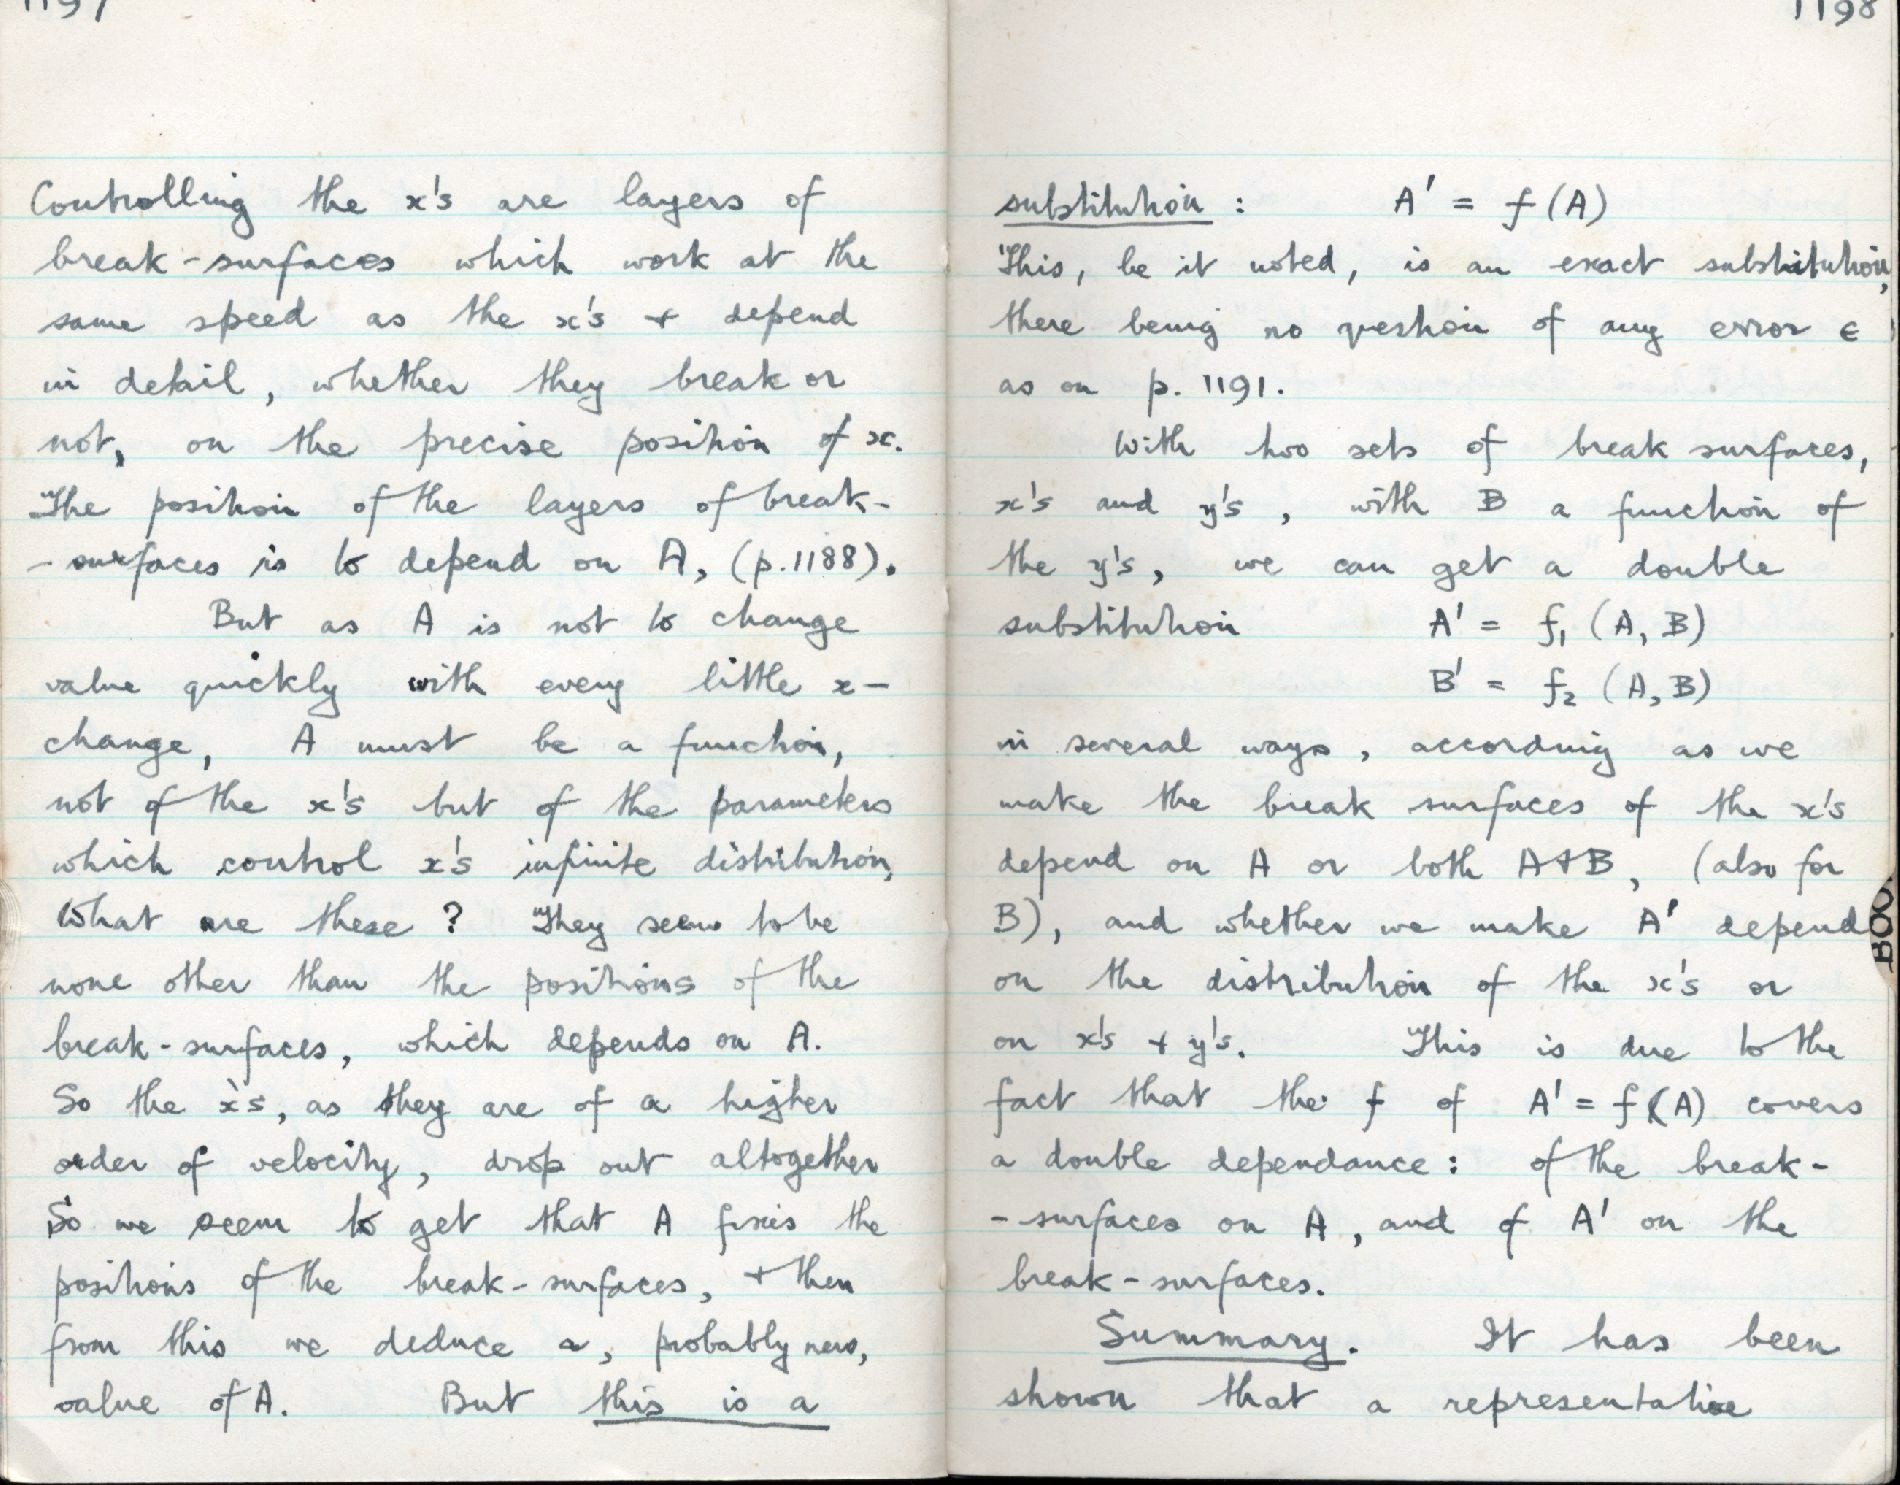 1197
Controlling the x's are layers of
break-surfaces which work at the
same speed as the x's + depend
in detail, whether they break or
not, on the precise position of x.
The position of the layers of break-
-surfaces is to depend on A, (p.1188).
But as A is not to change
value quickly with every little x-
change, A must be a function,
not of the x's but of the parameters
which control x's infinite distribution,
What are these? They seem to be
none other than the positions of the
break-surfaces, which depends on A.
So the x's, as they are of a higher
order of velocity, drop out altogether
So we seem to get that A fixes the
positions of the break-surfaces, + then
from this we deduce a, probably new,
value of A. But this is a
1198
substitution: A' = f(A)
This, be it noted, is an exact substitution,
there being no question of any error ϵ
as on p. 1191.
With two sets of break surfaces,
x's and y's, with B a function of
the y's, we can get a double
substitution A' = f₁ (A, B)
B' = f₂ (A, B)
in several ways, according as we
make the break surfaces of the x's
depend on A or both A+B, (also for
B), and whether we make A' depend
on the distribution of the x's or
on x's + y's. This is due to the
fact that the f of A' = f(A) covers
a double dependance: of the break-
-surfaces on A, and of A' on the
break-surfaces.
Summary. It has been
shown that a representative